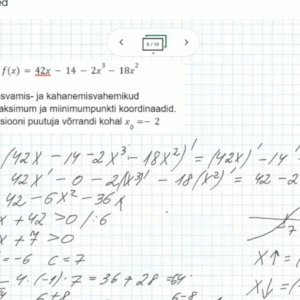 ed
5 / 10
f(x) = 42x − 14 − 2x³ − 18x²
svamis- ja kahanemisvahemikud
aksimum ja miinimumpunkti koordinaadid.
siooni puutuja võrrandi kohal x₀ = − 2
(42x − 14 − 2x³ − 18x²)' = (42x)' − 14'
42x' − 0 − 2(x³)' − 18(x²)' = 42 − 2
42 − 6x² − 36x
x + 42 > 0 / : 6
x + 7 > 0
= −6 c = 7
−7
4 · (−1) · 7 = 36 + 28 = 64
x↑ =
6 + 8
6 − 8
x↓ =